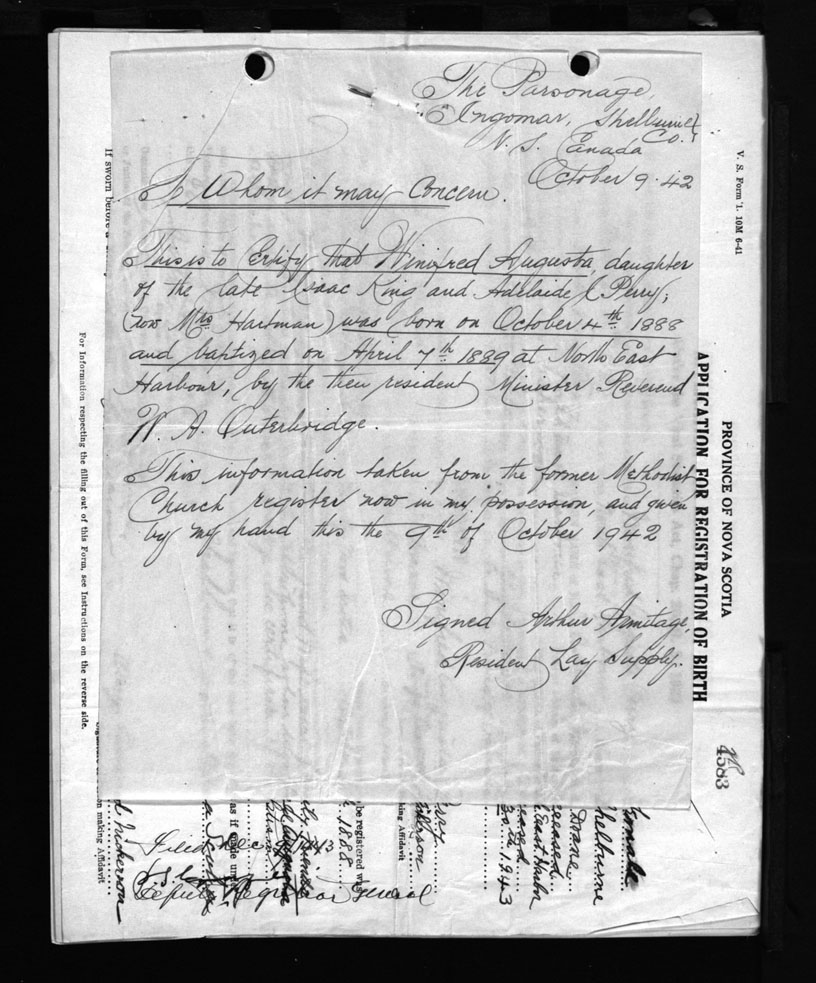 The Parsonage,
Ingomar, Shelburne
Co.,
N. S. Canada
October 9. 42
To Whom it may Concern.
This is to Certify that Winifred Augusta, daughter
of the late Isaac King and Adelaide C Perry;
(now Mrs Hartman) was born on October 4th 1888
and baptized on April 7th 1889 at North East
Harbour, by the then resident Minister Reverend
W. A. Outerbridge.
This information taken from the former Methodist
Church register now in my possession, and given
by my hand this the 9th of October 1942
Signed Arthur Armitage,
Resident Lay Supply.
V. S. Form 1. 10M 6-41
PROVINCE OF NOVA SCOTIA
APPLICATION FOR REGISTRATION OF BIRTH
4583
If sworn before a
For Information respecting the filling out of this Form, see Instructions on the reverse side.
female
Shelburne
Doane
East Harbor
30th 1943
king Affidavit
be registered was
1888
as if made un
on making Affidavit
Nickerson
Filed Dec
Deputy Registrar General